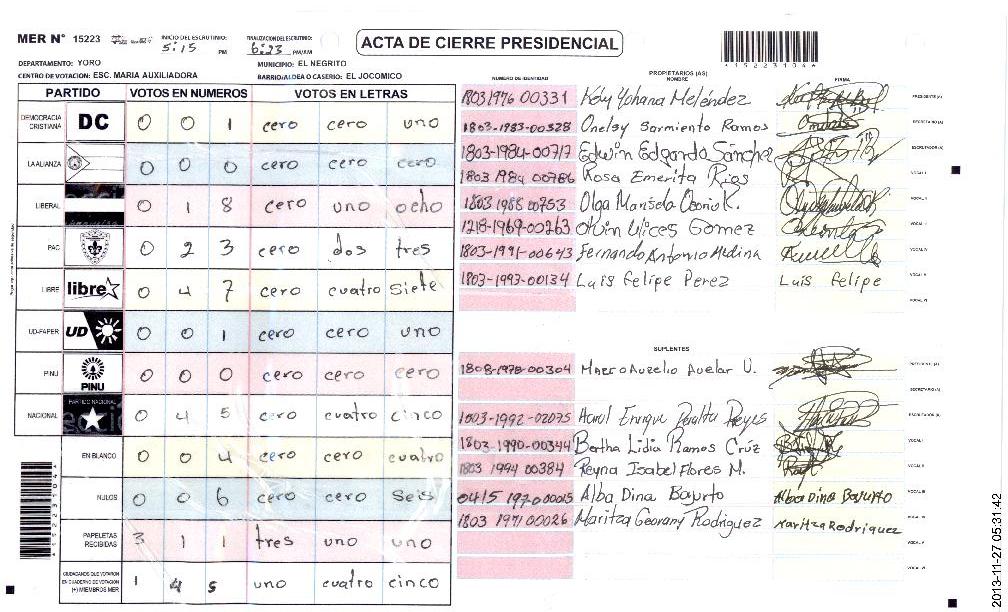 MER N° 15223
INICIO DEL ESCRUTINIO: 5:15 PM
FINALIZACION DEL ESCRUTINIO: 6:23 PM/AM
ACTA DE CIERRE PRESIDENCIAL
DEPARTAMENTO: YORO
MUNICIPIO: EL NEGRITO
CENTRO DE VOTACION: ESC. MARIA AUXILIADORA
BARRIO/ALDEA O CASERIO: EL JOCOMICO
PARTIDO VOTOS EN NUMEROS VOTOS EN LETRAS
DEMOCRACIA CRISTIANA DC 0 0 1 cero cero uno
LA ALIANZA 0 0 0 cero cero cero
LIBERAL 0 1 8 cero uno ocho
PAC 0 2 3 cero dos tres
LIBRE libre 0 4 7 cero cuatro siete
UD-FAPER UD 0 0 1 cero cero uno
PINU PINU 0 0 0 cero cero cero
NACIONAL PARTIDO NACIONAL 0 4 5 cero cuatro cinco
EN BLANCO 0 0 4 cero cero cuatro
NULOS 0 0 6 cero cero Seis
PAPELETAS RECIBIDAS 3 1 1 tres uno uno
CIUDADANOS QUE VOTARON EN CUADERNO DE VOTACION (+) MIEMBROS MER 1 4 5 uno cuatro cinco
*15223104*
PROPIETARIOS (AS)
NUMERO DE IDENTIDAD NOMBRE FIRMA
1803 1976 00331 Kely Yohana Meléndez PRESIDENTE (A)
1803-1983-00328 Onelsy Sarmiento Ramos SECRETARIO (A)
1803-1984-00717 Edwin Edgardo Sánchez ESCRUTADOR (A)
1803 1984 00786 Rosa Emerita Rios VOCAL I
1803 1988 00753 Olga Marisela Osorio K. VOCAL II
1218-1969-00263 Ulices Gomez VOCAL III
1803-1991-00643 Fernando Antonio Medina VOCAL IV
1803-1993-00134 Luis Felipe Perez Luis felipe VOCAL V
VOCAL VI
SUPLENTES
1808-1978-00304 Marco Aurelio Avelar U. PRESIDENTE (A)
SECRETARIO (A)
1803-1992-02075 Enrique Peralta Reyes ESCRUTADOR (A)
1803-1990-00344 Bertha Lidia Ramos Crúz VOCAL I
1803 1994 00384 Reyna Isabel Flores M. VOCAL II
0415 1970 00015 Alba Dina Bajurto Alba Dina Bajurto VOCAL III
1803 1971 00026 Maritza Georany Rodriguez Maritza Rodriguez VOCAL IV
VOCAL V
VOCAL VI
2013-11-27 05:31:42